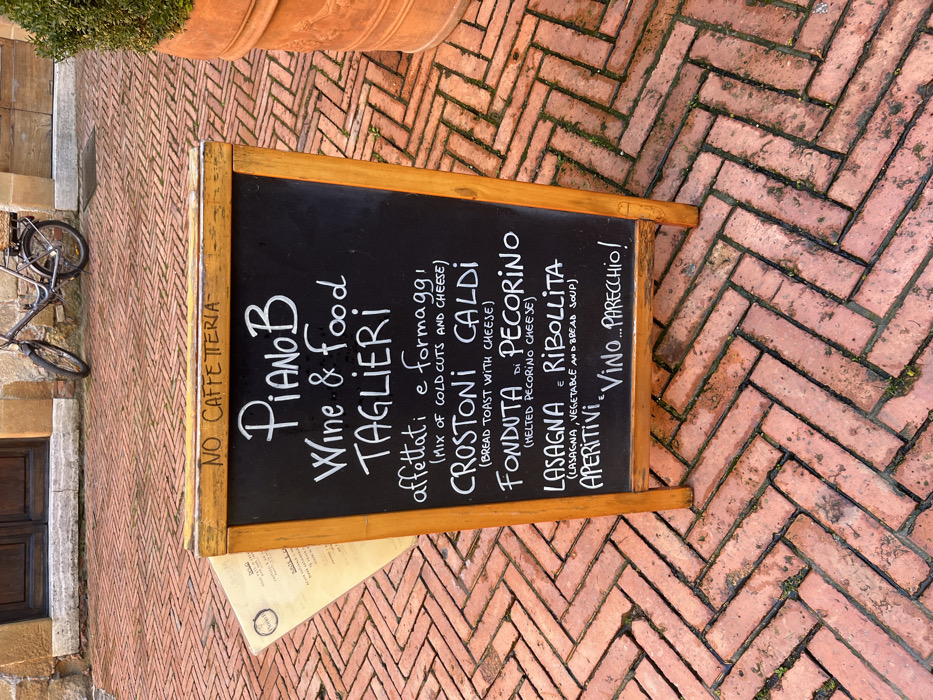 NO CAFFETTERIA
PIANOB
Wine & Food
TAGLIERI
affettati e formaggi
(MIX OF COLD CUTS AND CHEESE)
CROSTONI CALDI
(BREAD TOAST WITH CHEESE)
FONDUTA DI PECORINO
(MELTED PECORINO CHEESE)
LASAGNA E RIBOLLITA
(LASAGNA, VEGETABLE AND BREAD SOUP)
APERITIVI E VINO...PARECCHIO!